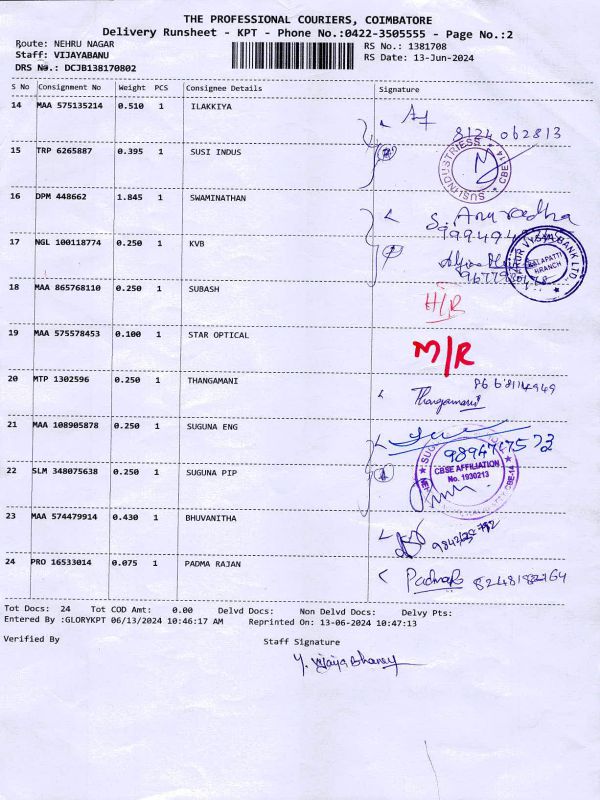 THE PROFESSIONAL COURIERS, COIMBATORE
Delivery Runsheet - KPT - Phone No.:0422-3505555 - Page No.:2
Route: NEHRU NAGAR
Staff: VIJAYABANU
DRS No.: DCJB138170802
RS No.: 1381708
RS Date: 13-Jun-2024
S No Consignment No Weight PCS Consignee Details Signature
14 MAA 575135214 0.510 1 ILAKKIYA
8124 062813
15 TRP 6265887 0.395 1 SUSI INDUS
SUSI INDUSTRIESS CBE-14
16 DPM 448662 1.845 1 SWAMINATHAN
S. Anuradha
17 NGL 100118774 0.250 1 KVB
VYSYA BANK LTD
BRANCH
18 MAA 865768110 0.250 1 SUBASH
H/R
19 MAA 575578453 0.100 1 STAR OPTICAL
M/R
20 MTP 1302596 0.250 1 THANGAMANI
Thangamani
21 MAA 108905878 0.250 1 SUGUNA ENG
22 SLM 348075638 0.250 1 SUGUNA PIP
CBSE AFFILIATION
No. 1930213
23 MAA 574479914 0.430 1 BHUVANITHA
24 PRO 16533014 0.075 1 PADMA RAJAN
Tot Docs: 24 Tot COD Amt: 0.00 Delvd Docs: Non Delvd Docs: Delvy Pts:
Entered By :GLORYKPT 06/13/2024 10:46:17 AM Reprinted On: 13-06-2024 10:47:13
Verified By Staff Signature
Y. Vijaya Bhanu